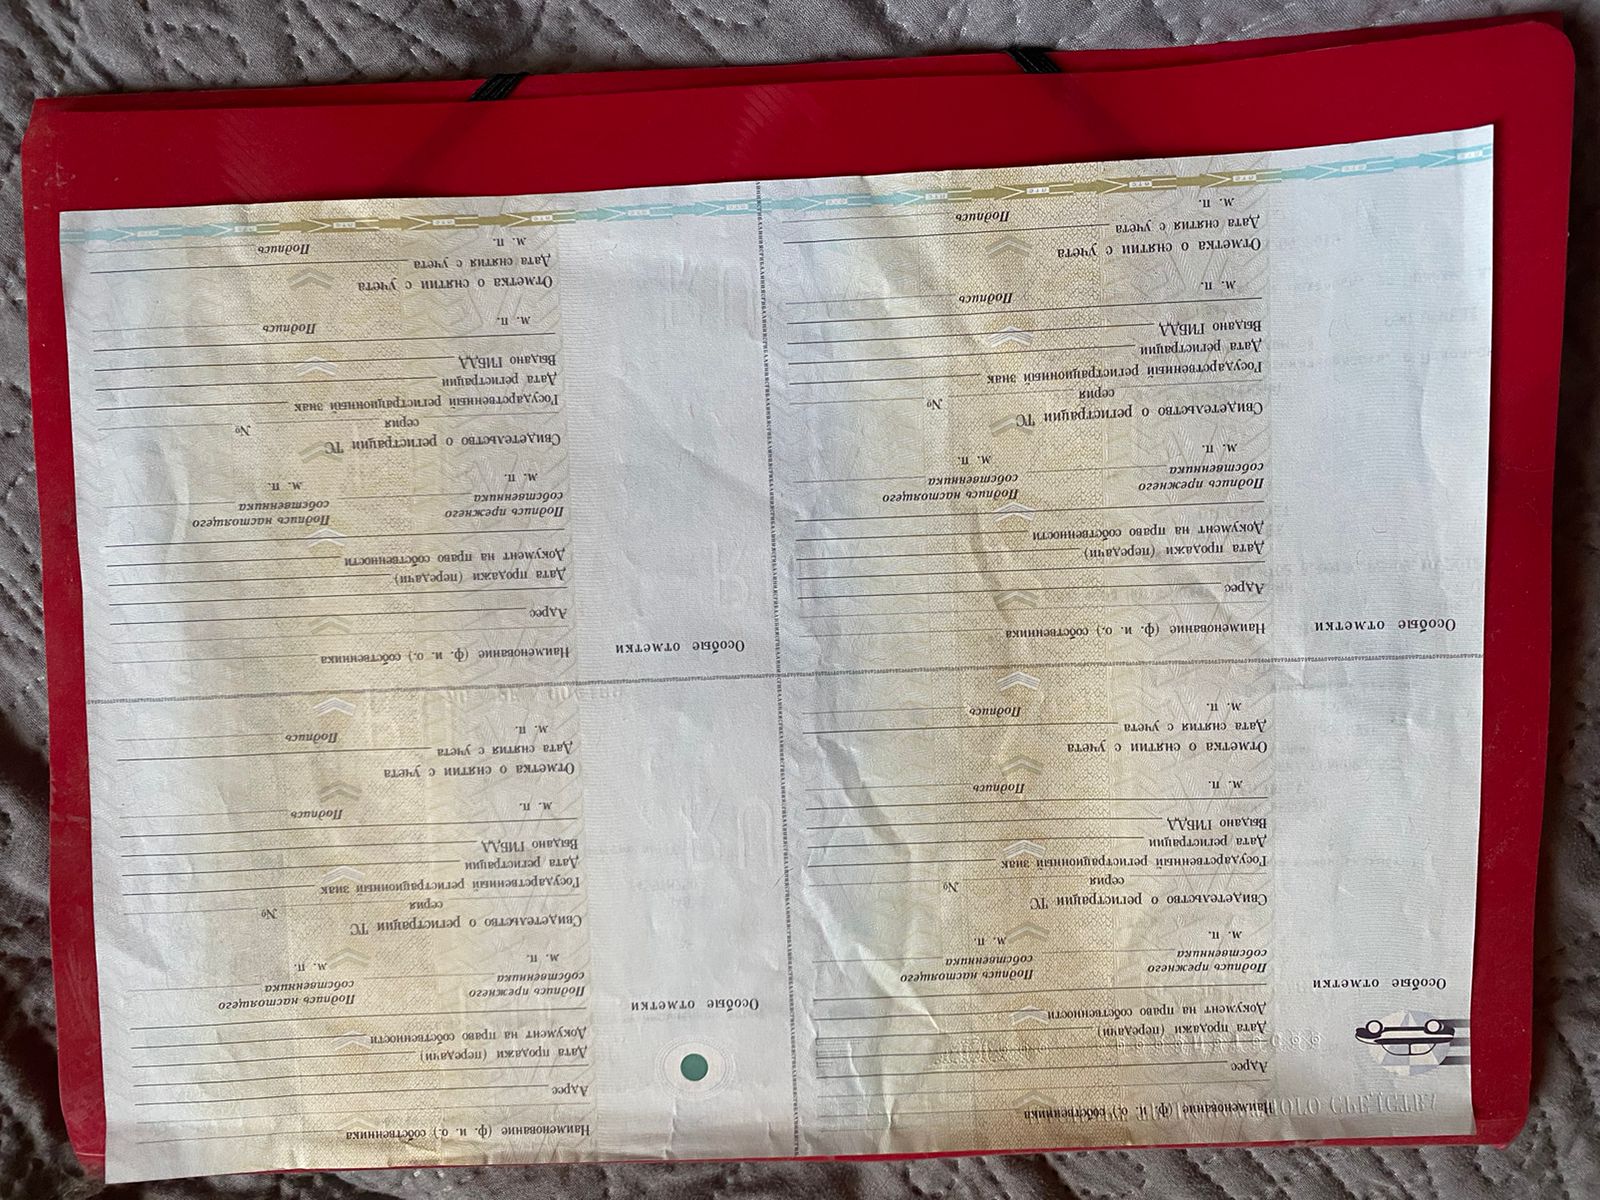 Особые отметки
Наименование (ф. и. о.) собственника
Адрес
Дата продажи (передачи)
Документ на право собственности
Подпись прежнего собственника
Подпись настоящего собственника
м. п.
м. п.
Свидетельство о регистрации ТС
серия №
Государственный регистрационный знак
Дата регистрации
Выдано ГИБДД
м. п. Подпись
Отметка о снятии с учета
Дата снятия с учета
м. п. Подпись
Особые отметки
Наименование (ф. и. о.) собственника
Адрес
Дата продажи (передачи)
Документ на право собственности
Подпись прежнего собственника
Подпись настоящего собственника
м. п.
м. п.
Свидетельство о регистрации ТС
серия №
Государственный регистрационный знак
Дата регистрации
Выдано ГИБДД
м. п. Подпись
Отметка о снятии с учета
Дата снятия с учета
м. п. Подпись
Особые отметки
Наименование (ф. и. о.) собственника
Адрес
Дата продажи (передачи)
Документ на право собственности
Подпись прежнего собственника
Подпись настоящего собственника
м. п.
м. п.
Свидетельство о регистрации ТС
серия №
Государственный регистрационный знак
Дата регистрации
Выдано ГИБДД
м. п. Подпись
Отметка о снятии с учета
Дата снятия с учета
м. п. Подпись
Особые отметки
Наименование (ф. и. о.) собственника
Адрес
Дата продажи (передачи)
Документ на право собственности
Подпись прежнего собственника
Подпись настоящего собственника
м. п.
м. п.
Свидетельство о регистрации ТС
серия №
Государственный регистрационный знак
Дата регистрации
Выдано ГИБДД
м. п. Подпись
Отметка о снятии с учета
Дата снятия с учета
м. п. Подпись